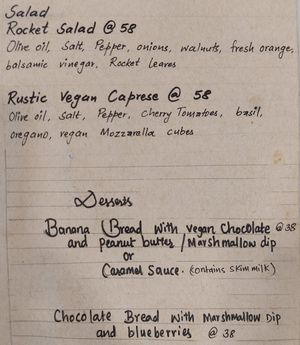 Salad
Rocket Salad @ 58
Olive oil, Salt, Pepper, onions, walnuts, fresh orange,
balsamic vinegar, Rocket leaves
Rustic Vegan Caprese @ 58
Olive oil, Salt, Pepper, cherry Tomatoes, basil,
oregano, vegan Mozzarella cubes
Desserts
Banana (Bread with vegan Chocolate @ 38
and Peanut butter / Marshmallow dip
or
Caramel Sauce. (contains skim milk)
Chocolate Bread with Marshmallow Dip
and blueberries @ 38